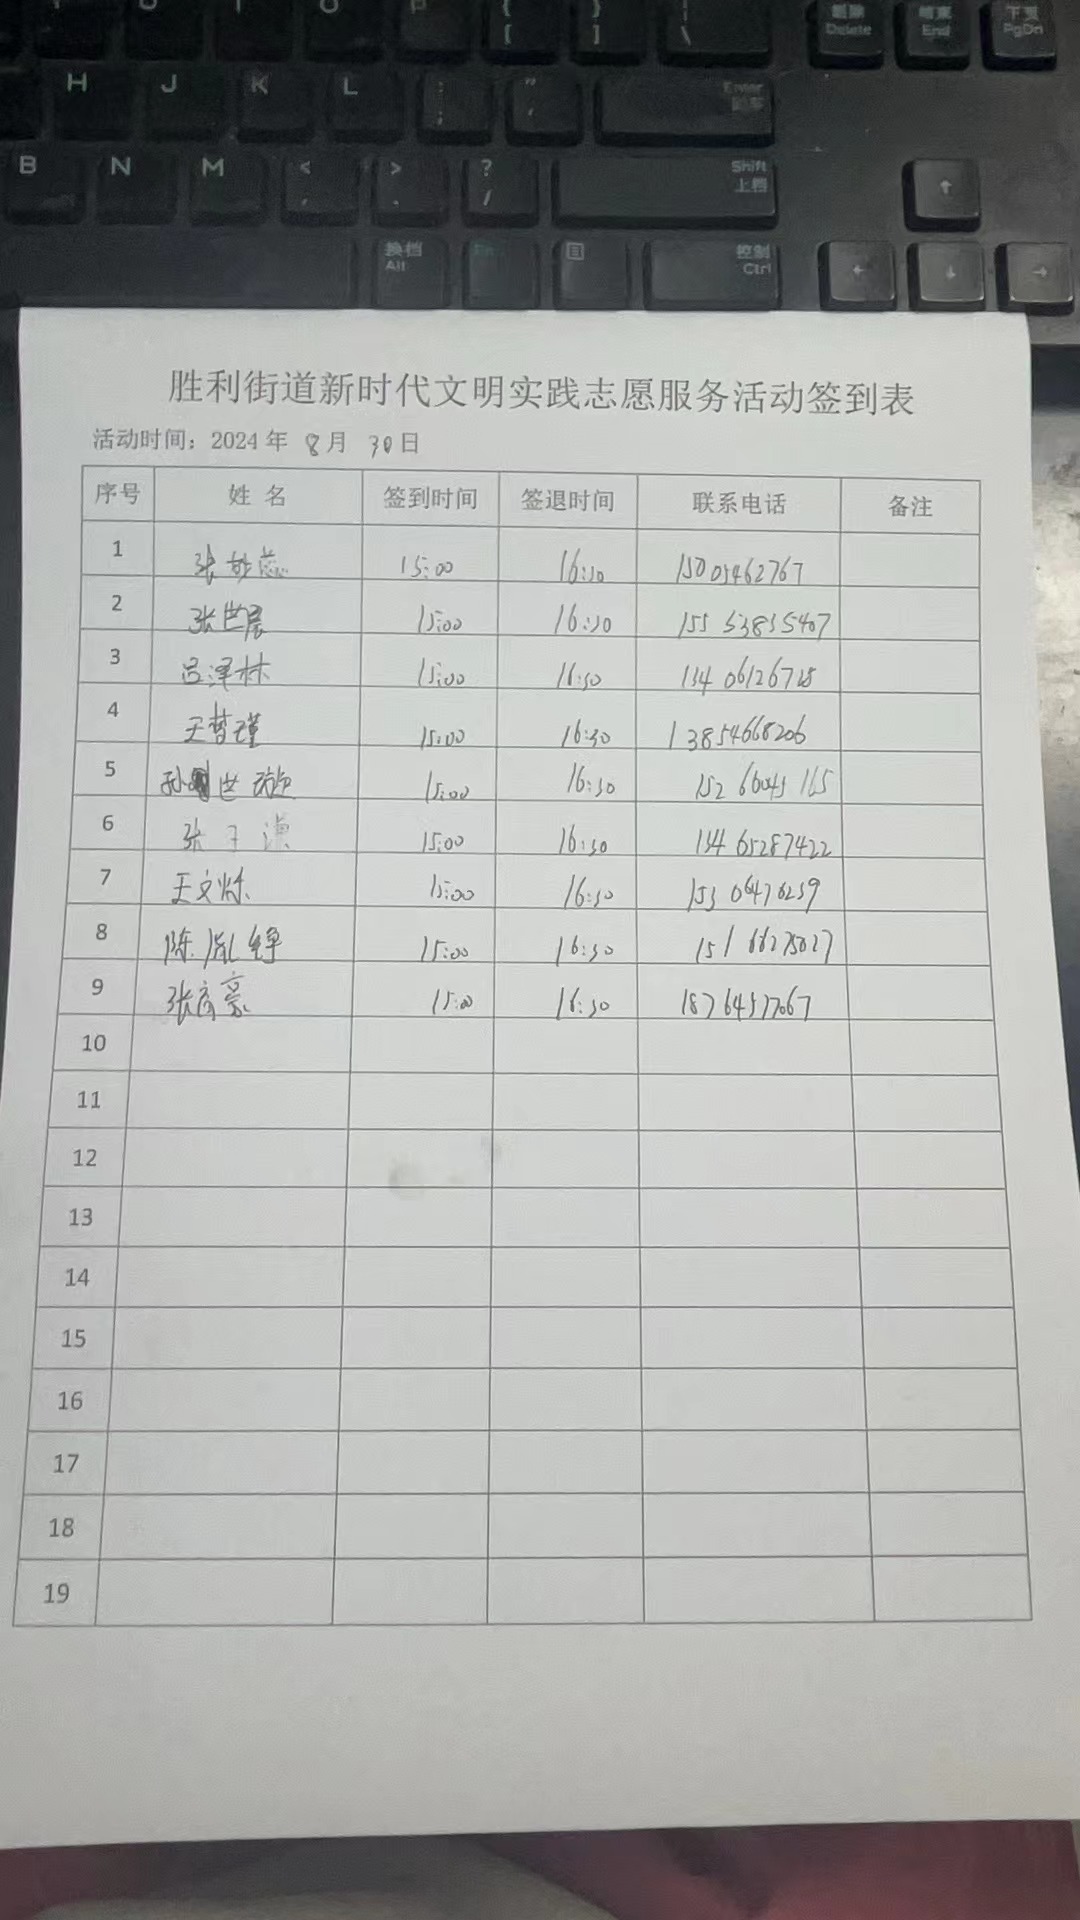 P { } |
[ ] \
删除 结束 下页
Delete End PgDn
H J K L : "
; '
Enter
回车
B N M < > ?
, . /
Shift
上档
↑
换档
Alt
控制
Ctrl
← ↓ →
胜利街道新时代文明实践志愿服务活动签到表
活动时间：2024年 8月 30日
序号 姓 名 签到时间 签退时间 联系电话 备注
1 张妙蕊 15:00 16:30 15005462767
2 张世晨 15:00 16:30 155 53835407
3 吕泽林 15:00 16:30
4 王哲瑾 15:00 16:30 13854668206
5 孙世 15:00 16:30
6 张子谦 15:00 16:30 134 65287422
7 王文烁 15:00 16:30
8 陈胤铮 15:00 16:30
9 张彦豪 15:00 16:30
10
11
12
13
14
15
16
17
18
19